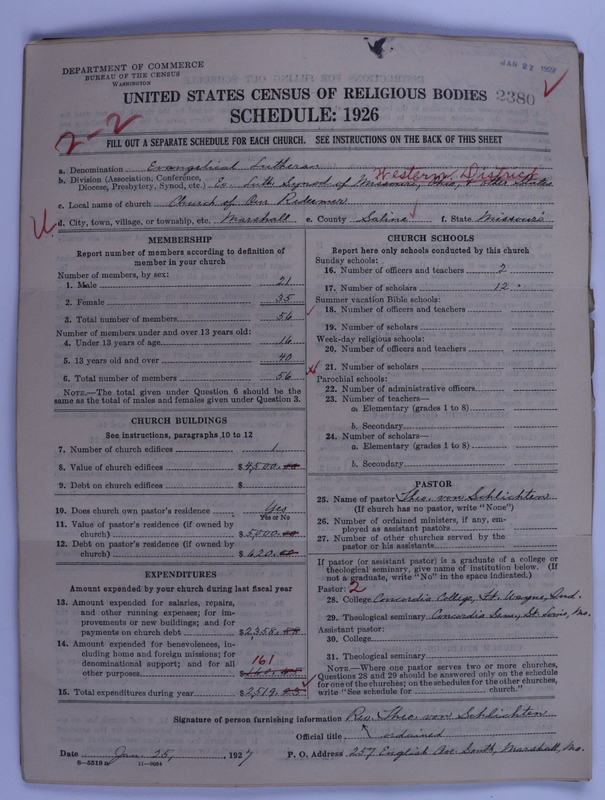 JAN 27 1927
DEPARTMENT OF COMMERCE
BUREAU OF THE CENSUS
WASHINGTON
UNITED STATES CENSUS OF RELIGIOUS BODIES 2380
SCHEDULE: 1926
2-2
FILL OUT A SEPARATE SCHEDULE FOR EACH CHURCH. SEE INSTRUCTIONS ON THE BACK OF THIS SHEET
a. Denomination Evangelical Lutheran
Western District
b. Division (Association, Conference, Diocese, Presbytery, Synod, etc.) Ev. Luth. Synod of Missouri, Ohio, & other States
c. Local name of church Church of Our Redeemer
U.
d. City, town, village, or township, etc. Marshall e. County Saline f. State Missouri
MEMBERSHIP
Report number of members according to definition of
member in your church
Number of members, by sex:
1. Male 21
2. Female 35
3. Total number of members 56
Number of members under and over 13 years old:
4. Under 13 years of age 16
5. 13 years old and over 40
6. Total number of members 56
NOTE.—The total given under Question 6 should be the
same as the total of males and females given under Question 3.
CHURCH BUILDINGS
See instructions, paragraphs 10 to 12
7. Number of church edifices 1
8. Value of church edifices $4500.00
9. Debt on church edifices $
10. Does church own pastor's residence Yes
Yes or No
11. Value of pastor's residence (if owned by
church) $5000.00
12. Debt on pastor's residence (if owned by
church) $620.00
EXPENDITURES
Amount expended by your church during last fiscal year
13. Amount expended for salaries, repairs,
and other running expenses; for im-
provements or new buildings; and for
payments on church debt $2358.
14. Amount expended for benevolences, in-
cluding home and foreign missions; for
denominational support; and for all
161
other purposes $160.
15. Total expenditures during year $2519.
CHURCH SCHOOLS
Report here only schools conducted by this church
Sunday schools:
16. Number of officers and teachers 2
17. Number of scholars 12
Summer vacation Bible schools:
18. Number of officers and teachers
19. Number of scholars
Week-day religious schools:
20. Number of officers and teachers
21. Number of scholars
Parochial schools:
22. Number of administrative officers
23. Number of teachers—
a. Elementary (grades 1 to 8)
b. Secondary
24. Number of scholars—
a. Elementary (grades 1 to 8)
b. Secondary
PASTOR
25. Name of pastor Theo. von Schlichten
(If church has no pastor, write "None")
26. Number of ordained ministers, if any, em-
ployed as assistant pastors
27. Number of other churches served by the
pastor or his assistants
If pastor (or assistant pastor) is a graduate of a college or
theological seminary, give name of institution below. (If
not a graduate, write "No" in the space indicated.)
Pastor: 2
28. College Concordia College, Ft. Wayne, Ind.
29. Theological seminary Concordia Sem., St. Louis, Mo.
Assistant pastor:
30. College
31. Theological seminary
NOTE.—Where one pastor serves two or more churches,
Questions 28 and 29 should be answered only on the schedule
for one of the churches; on the schedules for the other churches,
write "See schedule for church."
Signature of person furnishing information Rev. Theo. von Schlichten
Official title ordained
Date Jan. 25, 1927 P. O. Address 257 English Ave. South, Marshall, Mo.
8—5518 a 11—9034